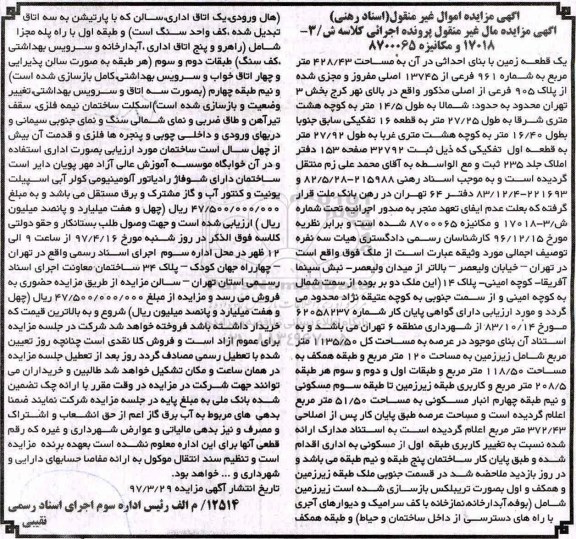 آگهی مزایده اموال غیر منقول(اسناد رهنی)
آگهی مزایده مال غیر منقول پرونده اجرائی کلاسه ش/۳-
۱۷۰۱۸ و مکانیزه ۸۷۰۰۰۶۵
یک قطعه زمین با بنای احداثی در آن به مساحت ۴۲۸/۴۳ متر
مربع به شماره ۹۶۱ فرعی از ۱۳۷۴۵ اصلی مفروز و مجزی شده
از پلاک ۹۰۵ فرعی از اصلی مذکور واقع در بالای نهر کرج بخش ۳
تهران محدود به حدود: شمالا به طول ۱۴/۵ متر به کوچه هشت
متری شرقا به طول ۲۷/۲۵ متر به قطعه ۱۶ تفکیکی سابق جنوبا
بطول ۱۶/۴۰ متر به کوچه هشت متری غربا به طول ۲۷/۹۲ متر
به قطعه اول تفکیکی که ذیل ثبت ۳۲۷۹۲ صفحه ۱۵۳ دفتر
املاک جلد ۲۳۵ ثبت و مع الواسطه به آقای محمد علی زم منتقل
گردیده است و به موجب اسناد رهنی ۲۱۵۹۸۸-۸۲/۵/۲۸ و
۲۲۱۶۹۳-۸۳/۱۲/۴ دفتر ۶۴ تهران در رهن بانک ملت قرار
گرفته که بعلت عدم ایفای تعهد منجر به صدور اجرائیه تحت شماره
ش/۳-۱۷۰۱۸ و مکانیزه ۸۷۰۰۰۶۵ شده است و برابر نظریه
مورخ ۹۶/۱۲/۱۵ کارشناسان رسمی دادگستری هیات سه نفره
توصیف اجمالی مورد وثیقه عبارت است از ملک فوق واقع است
در تهران – خیابان ولیعصر – بالاتر از میدان ولیعصر– نبش سینما
آفریقا– کوچه امینی– پلاک ۱۴ (این ملک دو بر بوده از سمت شمال
به کوچه امینی و از سمت جنوبی به کوچه عتیقه نژاد محدود می
گردد و مورد ارزیابی دارای گواهی پایان کار شماره ۶۲۰۵۸۲۳۷
مـورخ ۸۳/۱۰/۱۴ از شهرداری منطقه ۶ تهران می باشد و به
استناد آن بنای موجود در عرصه به مساحت کل ۱۱۳۵/۵۰ متر
مربع شامل زیرزمین به مساحت ۱۲۰ متر مربع و طبقه همکف به
مساحت ۱۱۸/۵۰ متر مربع و طبقات اول و دوم و سوم هر طبقه
۲۰۸/۵ متر مربع و کاربری طبقه زیرزمین تا طبقه سوم مسکونی
و نیم طبقه چهارم انبار مسکونی به مساحت ۵۱/۵۰ متر مربع
اعلام گردیده است و مساحت عرصه طبق پایان کار پس از اصلاحی
۳۷۲/۴۳ متر مربع اعلام گردیده است به استناد مدارک ارائه
شده نسبت به تغییر کاربری طبقه اول از مسکونی به اداری اقدام
شده و طبق پایان کار ساختمان پنج طبقه و نیم طبقه می باشد و
در روز بازدید ملاحظه شد در قسمت جنوبی ملک طبقه زیرزمین
و همکف و اول بصورت تریپلکس بازسازی شده است زیرزمین
شامل (بوفه،آبدارخانه،نمازخانه با کف سرامیک و دیوارهای آجری
با راه های دسترسی از داخل ساختمان و حیاط) و طبقه همکف
(هال ورودی،یک اتاق اداری،سالن که با پارتیشن به سه اتاق
تبدیل شده ،کف واحد سنگ است) و طبقه اول با راه پله مجزا
شامل (راهرو و پنج اتاق اداری ،آبدارخانه و سرویس بهداشتی
،کف سنگ) طبقات دوم و سوم (هر طبقه به صورت سالن پذیرایی
و چهار اتاق خواب و سرویس بهداشتی،کامل بازسازی شده است)
و نیم طبقه چهارم (بصورت سه اتاق و سرویس بهداشتی،تغییر
وضعیت و بازسازی شده است)اسکلت ساختمان نیمه فلزی، سقف
تیرآهن و طاق ضربی و نمای شمالی سنگ و نمای جنوبی سیمانی و
دربهای ورودی و داخلـی چوبی و پنجره ها فلزی و قدمت آن بیش
از چهل سـال است ساختمان مورد ارزیابی بصورت اداری استفاده
و در آن خوابگاه موسسـه آموزش عالی آزاد مهر پویان دایر است
ساختمان دارای شـوفاژ رادیاتور آلومینیومی کولر آبی اسپیلت
یونیت و کنتور آب و گاز مشترک و برق مستقل می باشد و به مبلغ
۴۷/۵۰۰/۰۰۰/۰۰۰ ریال (چهل و هفت میلیارد و پانصد میلیون
ریال ) ارزیابی شده است و جهت وصول طلب بستانکار و حقو دولتی
کلاسه فوق الذکر در روز شـنبه مورخ ۹۷/۴/۱۶ از ساعت ۹ الی
۱۲ ظهر در محل اداره سوم اجرای اسناد رسمی واقع در تهران
– چهارراه جهان کودک – پلاک ۳۴ ساختمان معاونت اجرای اسناد
رسمی استان تهران – سالن مزایده از طریق مزایده حضوری به
فروش می رسد و مزایده از مبلغ ۴۷/۵۰۰/۰۰۰/۰۰۰ ریال (چهل
و هفت میلیارد و پانصد میلیون ریال) شروع و به بالاترین قیمت که
خریدار داشته باشد فروخته خواهد شد شرکت در جلسه مزایده
برای عموم آزاد است و فروش کلا نقدی است چنانچه روز تعیین
شده با تعطیل رسمی مصادف گردد روز بعد از تعطیل جلسه مزایده
در همان ساعت و مکان تشکیل خواهد شد طالبین و خریداران می
توانند جهت شـرکت در مزایده در وقت مقرر با ارائه چک تضمین
شده بانک ملی به مبلغ پایه در جلسه مزایده شرکت نمایند ضمنا
بدهی های مربوط به آب برق گاز اعم از حق انشـعاب و اشتراک
و مصرف و نیز بدهی مالیاتی و عوارض شهرداری و غیره که رقم
قطعی آنها برای این اداره معلوم نشده است بعهده برنده مزایده
است و تنظیم سند انتقال موکول به ارائه مفاصا حسابهای دارایی و
شهرداری و ... خواهد بود.
تاریخ انتشار آگهی مزایده ۹۷/۳/۲۹
۱۲۵۱۴/ م الف رئیس اداره سوم اجرای اسناد رسمی
نقیبی